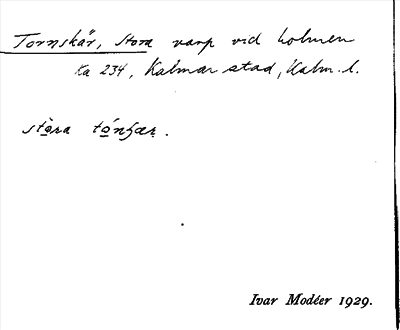 Tornskär, Stora varp vid holmen
Ka 234, Kalmar stad, Kalm. l.
stora
Ivar Modéer 1929.